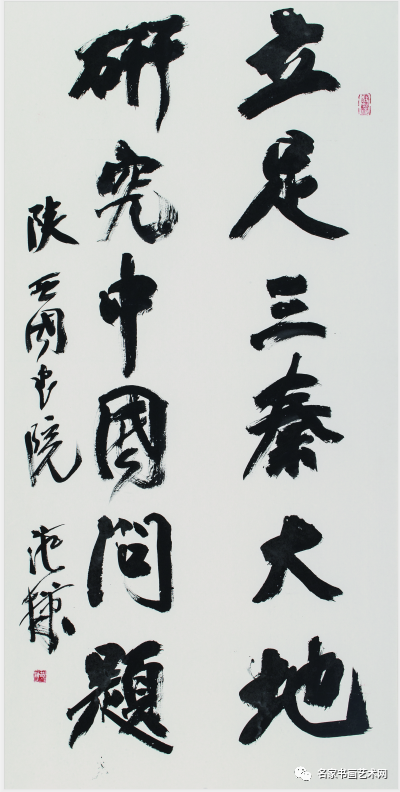 立足三秦大地
研究中國問題
陕西國画院
名家书画艺术网